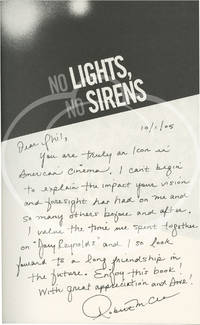 NO LIGHTS,
NO SIRENS
10/1/05
Dear Phil,
You are truly an Icon in
American Cinema. I can't begin
to explain the impact your vision
and foresight has had on me and
so many others before and after.
I value the time we spent together
on "Joey Reynolds" and I so look
forward to a long friendship in
the future. Enjoy this book!
With great appreciation and
Robert